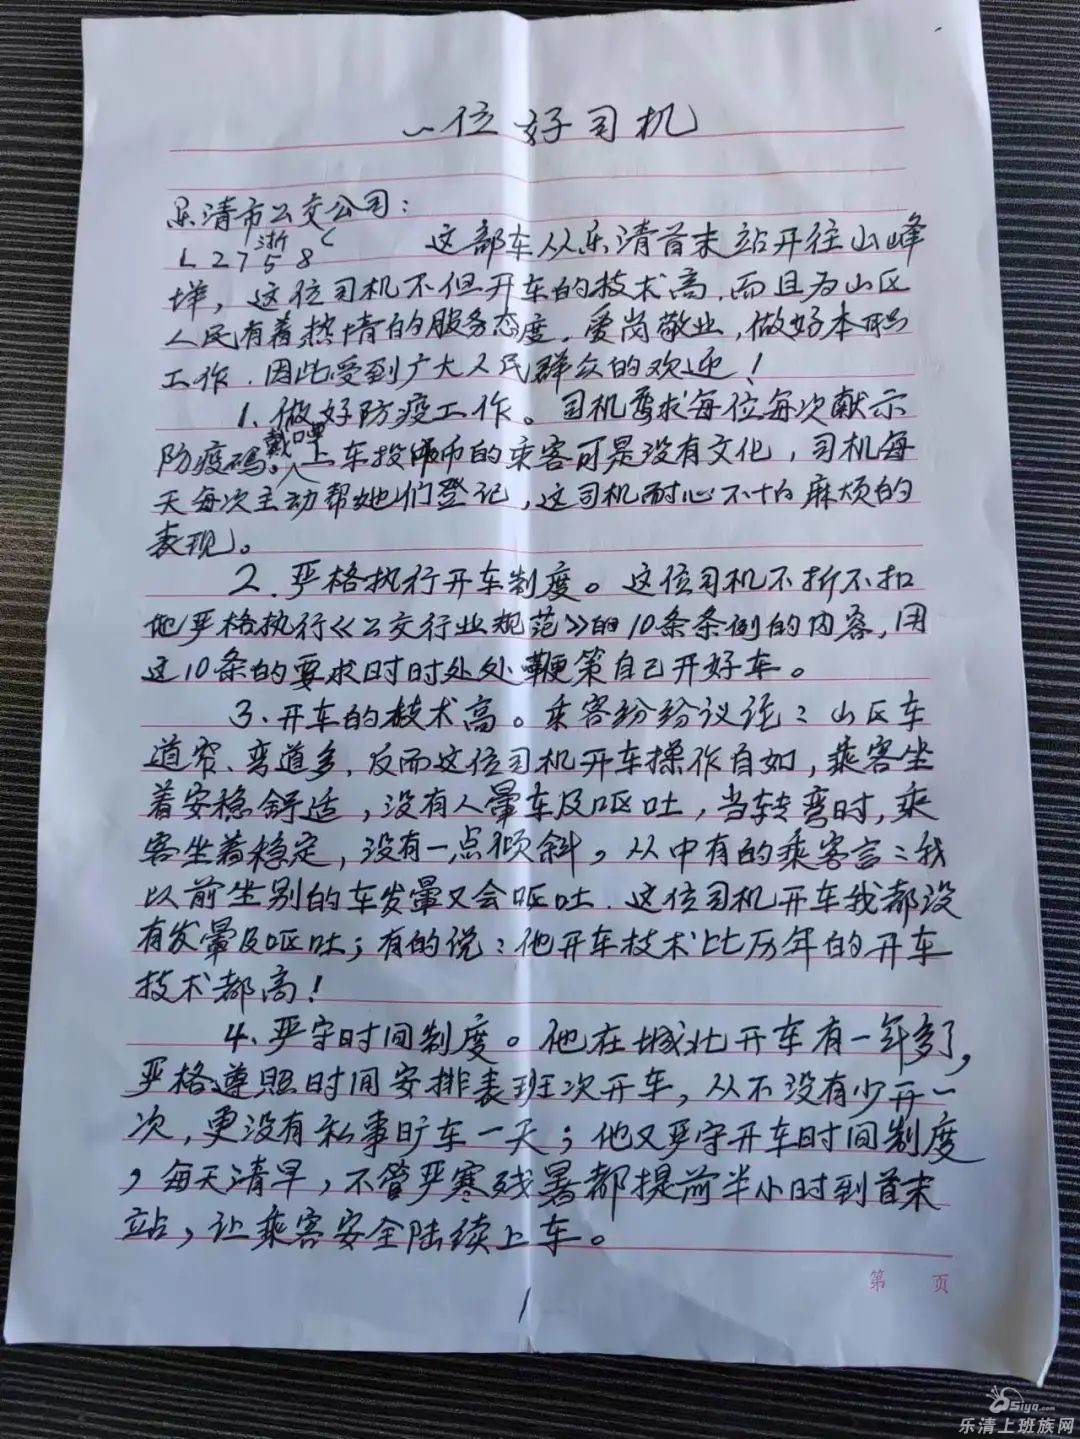 一位好司机
乐清市公交公司：
浙C
L2758 这部车从乐清首末站开往山峰
垟，这位司机不但开车的技术高，而且为山区
人民有着热情的服务态度。爱岗敬业，做好本职
工作．因此受到广大人民群众的欢迎！
1、做好防疫工作。司机要求每位每次献示
戴口罩
防疫码。上车投币的乘客可是没有文化，司机每
人
天每次主动帮她们登记，这司机耐心不怕麻烦的
表现。
2．严格执行开车制度。这位司机不折不扣
地严格执行《公交行业规范》的10条条例的内容，用
这10条的要求时时处处鞭策自己开好车。
3、开车的技术高。乘客纷纷议论：山区车
道窄、弯道多，反而这位司机开车操作自如，乘客坐
着安稳舒适，没有人晕车及呕吐，当转弯时，乘
客坐着稳定，没有一点倾斜，从中有的乘客言：我
以前坐别的车发晕又会呕吐．这位司机开车我都没
有发晕及呕吐；有的说：他开车技术比历年的开车
技术都高！
4、严守时间制度。他在城北开车有一年多了，
严格遵照时间安排表班次开车，从不没有少开一
次，更没有私事旷车一天；他又严守开车时间制度
，每天清早，不管严寒残暑都提前半小时到首末
站，让乘客安全陆续上车。
第 页
1
Siyo.com
乐清上班族网